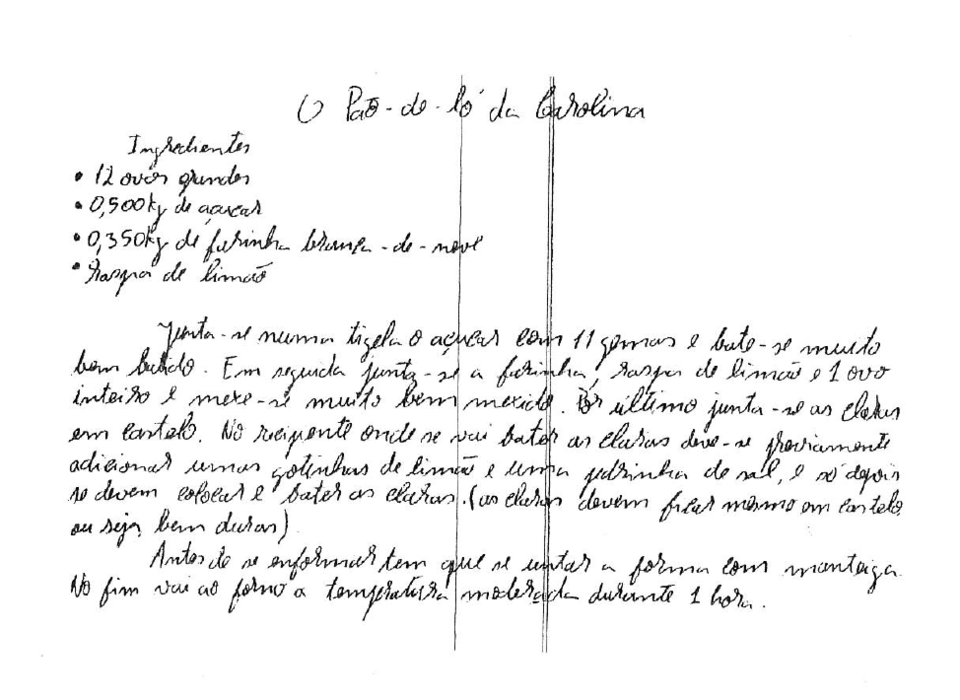 O Pão-de-ló da Carolina
Ingredientes
• 12 ovos grandes
• 0,500kg de açucar
• 0,350kg de farinha branca-de-neve
• Raspa de limão
Junta-se numa tigela o açucar com 11 gemas e bate-se muito
bem batido. Em seguida junta-se a farinha, raspa de limão e 1 ovo
inteiro e mexe-se muito bem mexido. Por último junta-se as claras
em castelo. No recipente onde se vai bater as claras deve-se previamente
adicionar umas gotinhas de limão e uma pedrinha de sal, e só depois
se devem colocar e bater as claras. (as claras devem ficar mesmo em castelo
ou seja, bem duras).
Antes de se enformar tem que se untar a forma com manteiga.
No fim vai ao forno a temperatura moderada durante 1 hora.